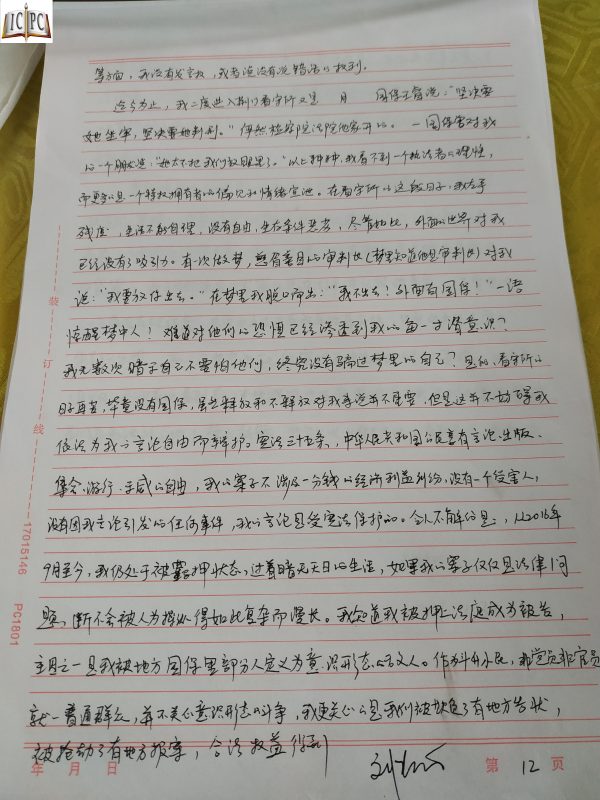 ICPC
等方面，我没有发言权，或者说没有说错话的权利。
迄今为止，我二度进入荆门看守所又是 月 国保王督说："坚决要
她坐牢，坚决要她判刑。"俨然检察院法院他家开的。一国保曾对我
的一个朋友说："她太不把我们放眼里了。"以上种种，我看不到一个执法者的理性，
而更多的是一个特权拥有者的偏见和情绪宣泄。在看守所的这段日子，我右手
残废，生活不能自理，没有自由，生存条件恶劣，尽管如此，外面的世界对我
已经没有了吸引力。有次做梦，慈眉善目的审判长（梦里知道他是审判长）对我
说："我要放你出去。"在梦里我脱口而出："我不出去！外面有国保！"一语
惊醒梦中人！难道对他们的恐惧已经渗透到我的每一寸潜意识？
我无数次暗示自己不要怕他们，终究没有骗过梦里的自己？是的，看守所的
日子再苦，毕竟没有国保，虽然释放和不释放对我来说并不重要，但是这并不妨碍我
依法为我的言论自由而辩护。宪法三十五条，中华人民共和国公民享有言论、出版、
集会、游行、示威的自由，我的案子不涉及一分钱的经济利益纠纷，没有一个受害人，
没有因我言论引发的任何事件，我的言论是受宪法保护的。令人不解的是，从2016年
9月至今，我仍处于被羁押状态，过着暗无天日的生活，如果我的案子仅仅是法律问
题，断不会被人为操纵得如此复杂而漫长。我知道我被押上法庭成为被告，
主因之一是我被地方国保里部分人定义为意识形态的敌人。作为升斗小民，非党员非官员
就一普通群众，并不关心意识形态的斗争，我更关心的是我们被欺负了有地方告状，
被抢劫了有地方报案，合法权益得到
装
订
线
17015146 PC1801
年 月 日
第 12 页